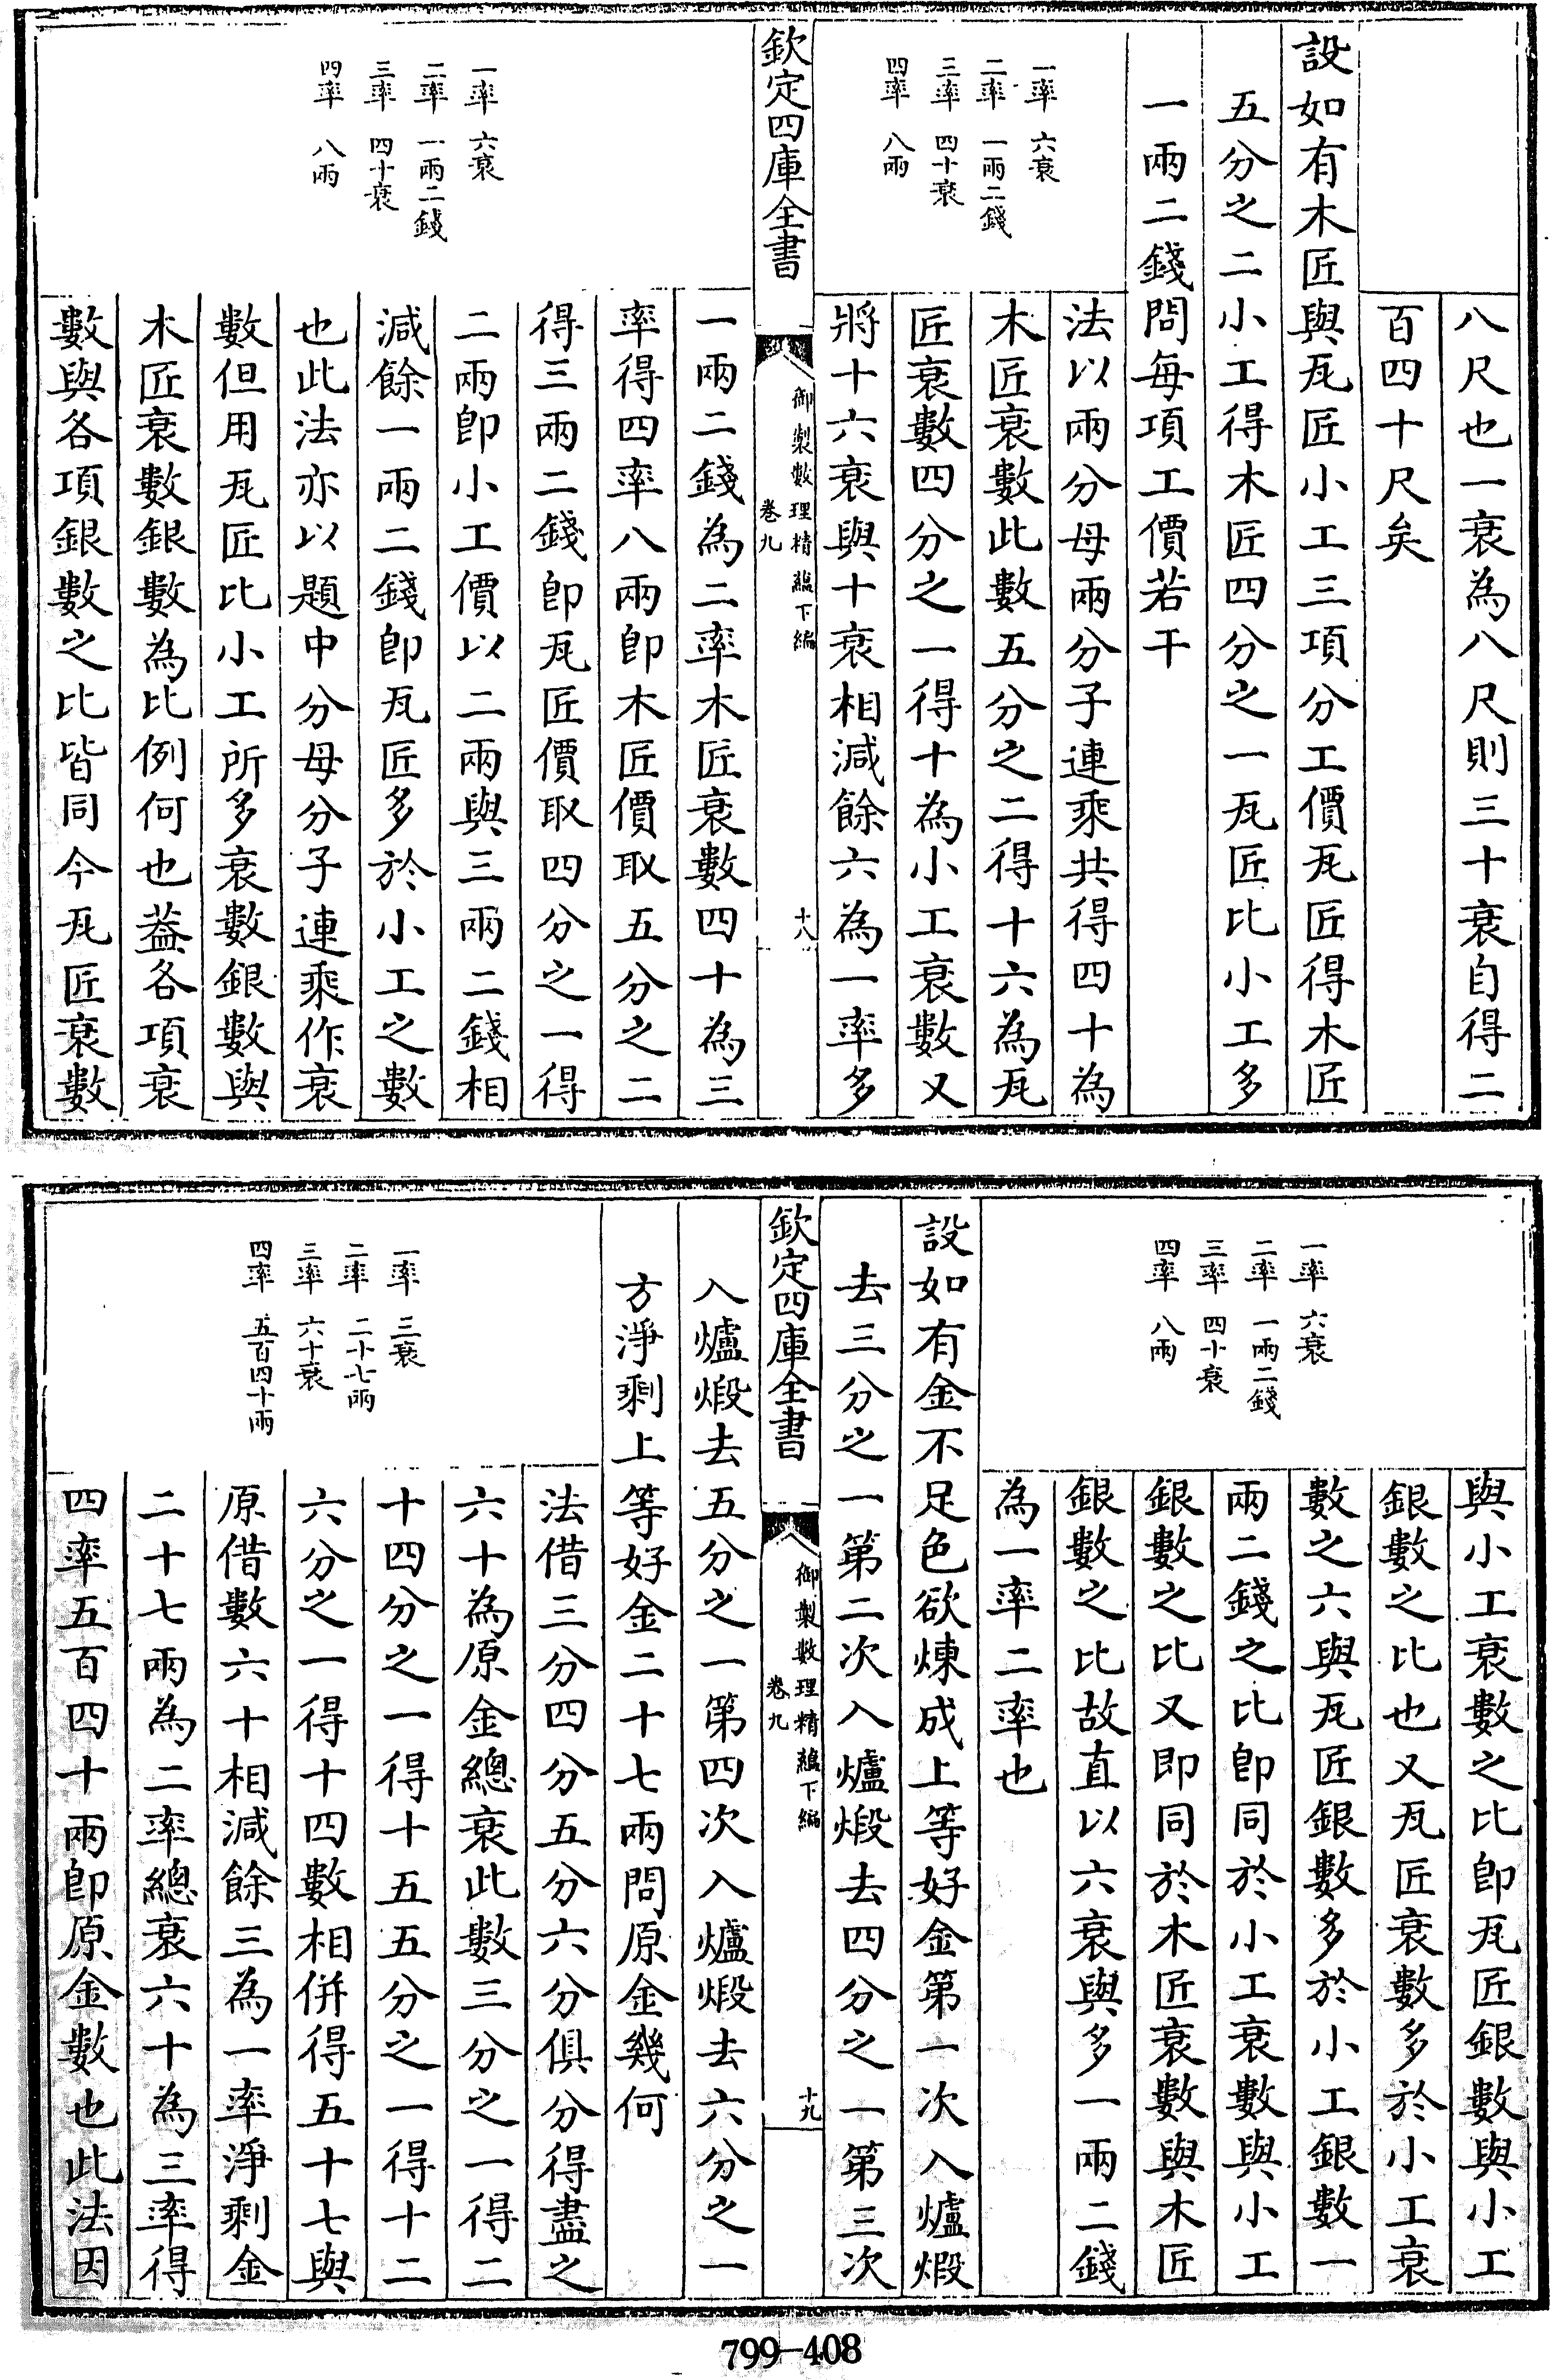 八尺也一衰為八尺則三十衰自得二
百四十尺矣
設如有木匠與瓦匠小工三項分工價瓦匠得木匠
五分之二小工得木匠四分之一瓦匠比小工多
一兩二錢問每項工價若干
一率 六衰
二率 一兩二錢
三率 四十衰
四率 八兩
法以兩分母兩分子連乘共得四十為
木匠衰數此數五分之二得十六為瓦
匠衰數四分之一得十為小工衰數又
將十六衰與十衰相減餘六為一率多
欽定四庫全書
御製數理精蘊下編
卷九
十八
一兩二錢為二率木匠衰數四十為三
率得四率八兩即木匠價取五分之二
得三兩二錢即瓦匠價取四分之一得
二兩即小工價以二兩與三兩二錢相
減餘一兩二錢即瓦匠多於小工之數
也此法亦以題中分母分子連乘作衰
數但用瓦匠比小工所多衰數銀數與
木匠衰數銀數為比例何也蓋各項衰
數與各項銀數之比皆同今瓦匠衰數
一率 六衰
二率 一兩二錢
三率 四十衰
四率 八兩
與小工衰數之比即瓦匠銀數與小工
銀數之比也又瓦匠衰數多於小工衰
數之六與瓦匠銀數多於小工銀數一
兩二錢之比即同於小工衰數與小工
銀數之比又即同於木匠衰數與木匠
銀數之比故直以六衰與多一兩二錢
為一率二率也
一率 六衰
二率 一兩二錢
三率 四十衰
四率 八兩
設如有金不足色欲煉成上等好金第一次入爐煅
去三分之一第二次入爐煅去四分之一第三次
欽定四庫全書
御製數理精蘊下編
卷九
十九
入爐煅去五分之一第四次入爐煅去六分之一
方淨剩上等好金二十七兩問原金幾何
一率 三衰
二率 二十七兩
三率 六十衰
四率 五百四十兩
法借三分四分五分六分俱分得盡之
六十為原金總衰此數三分之一得二
十四分之一得十五五分之一得十二
六分之一得十四數相併得五十七與
原借數六十相減餘三為一率淨剩金
二十七兩為二率總衰六十為三率得
四率五百四十兩即原金數也此法因
799-408